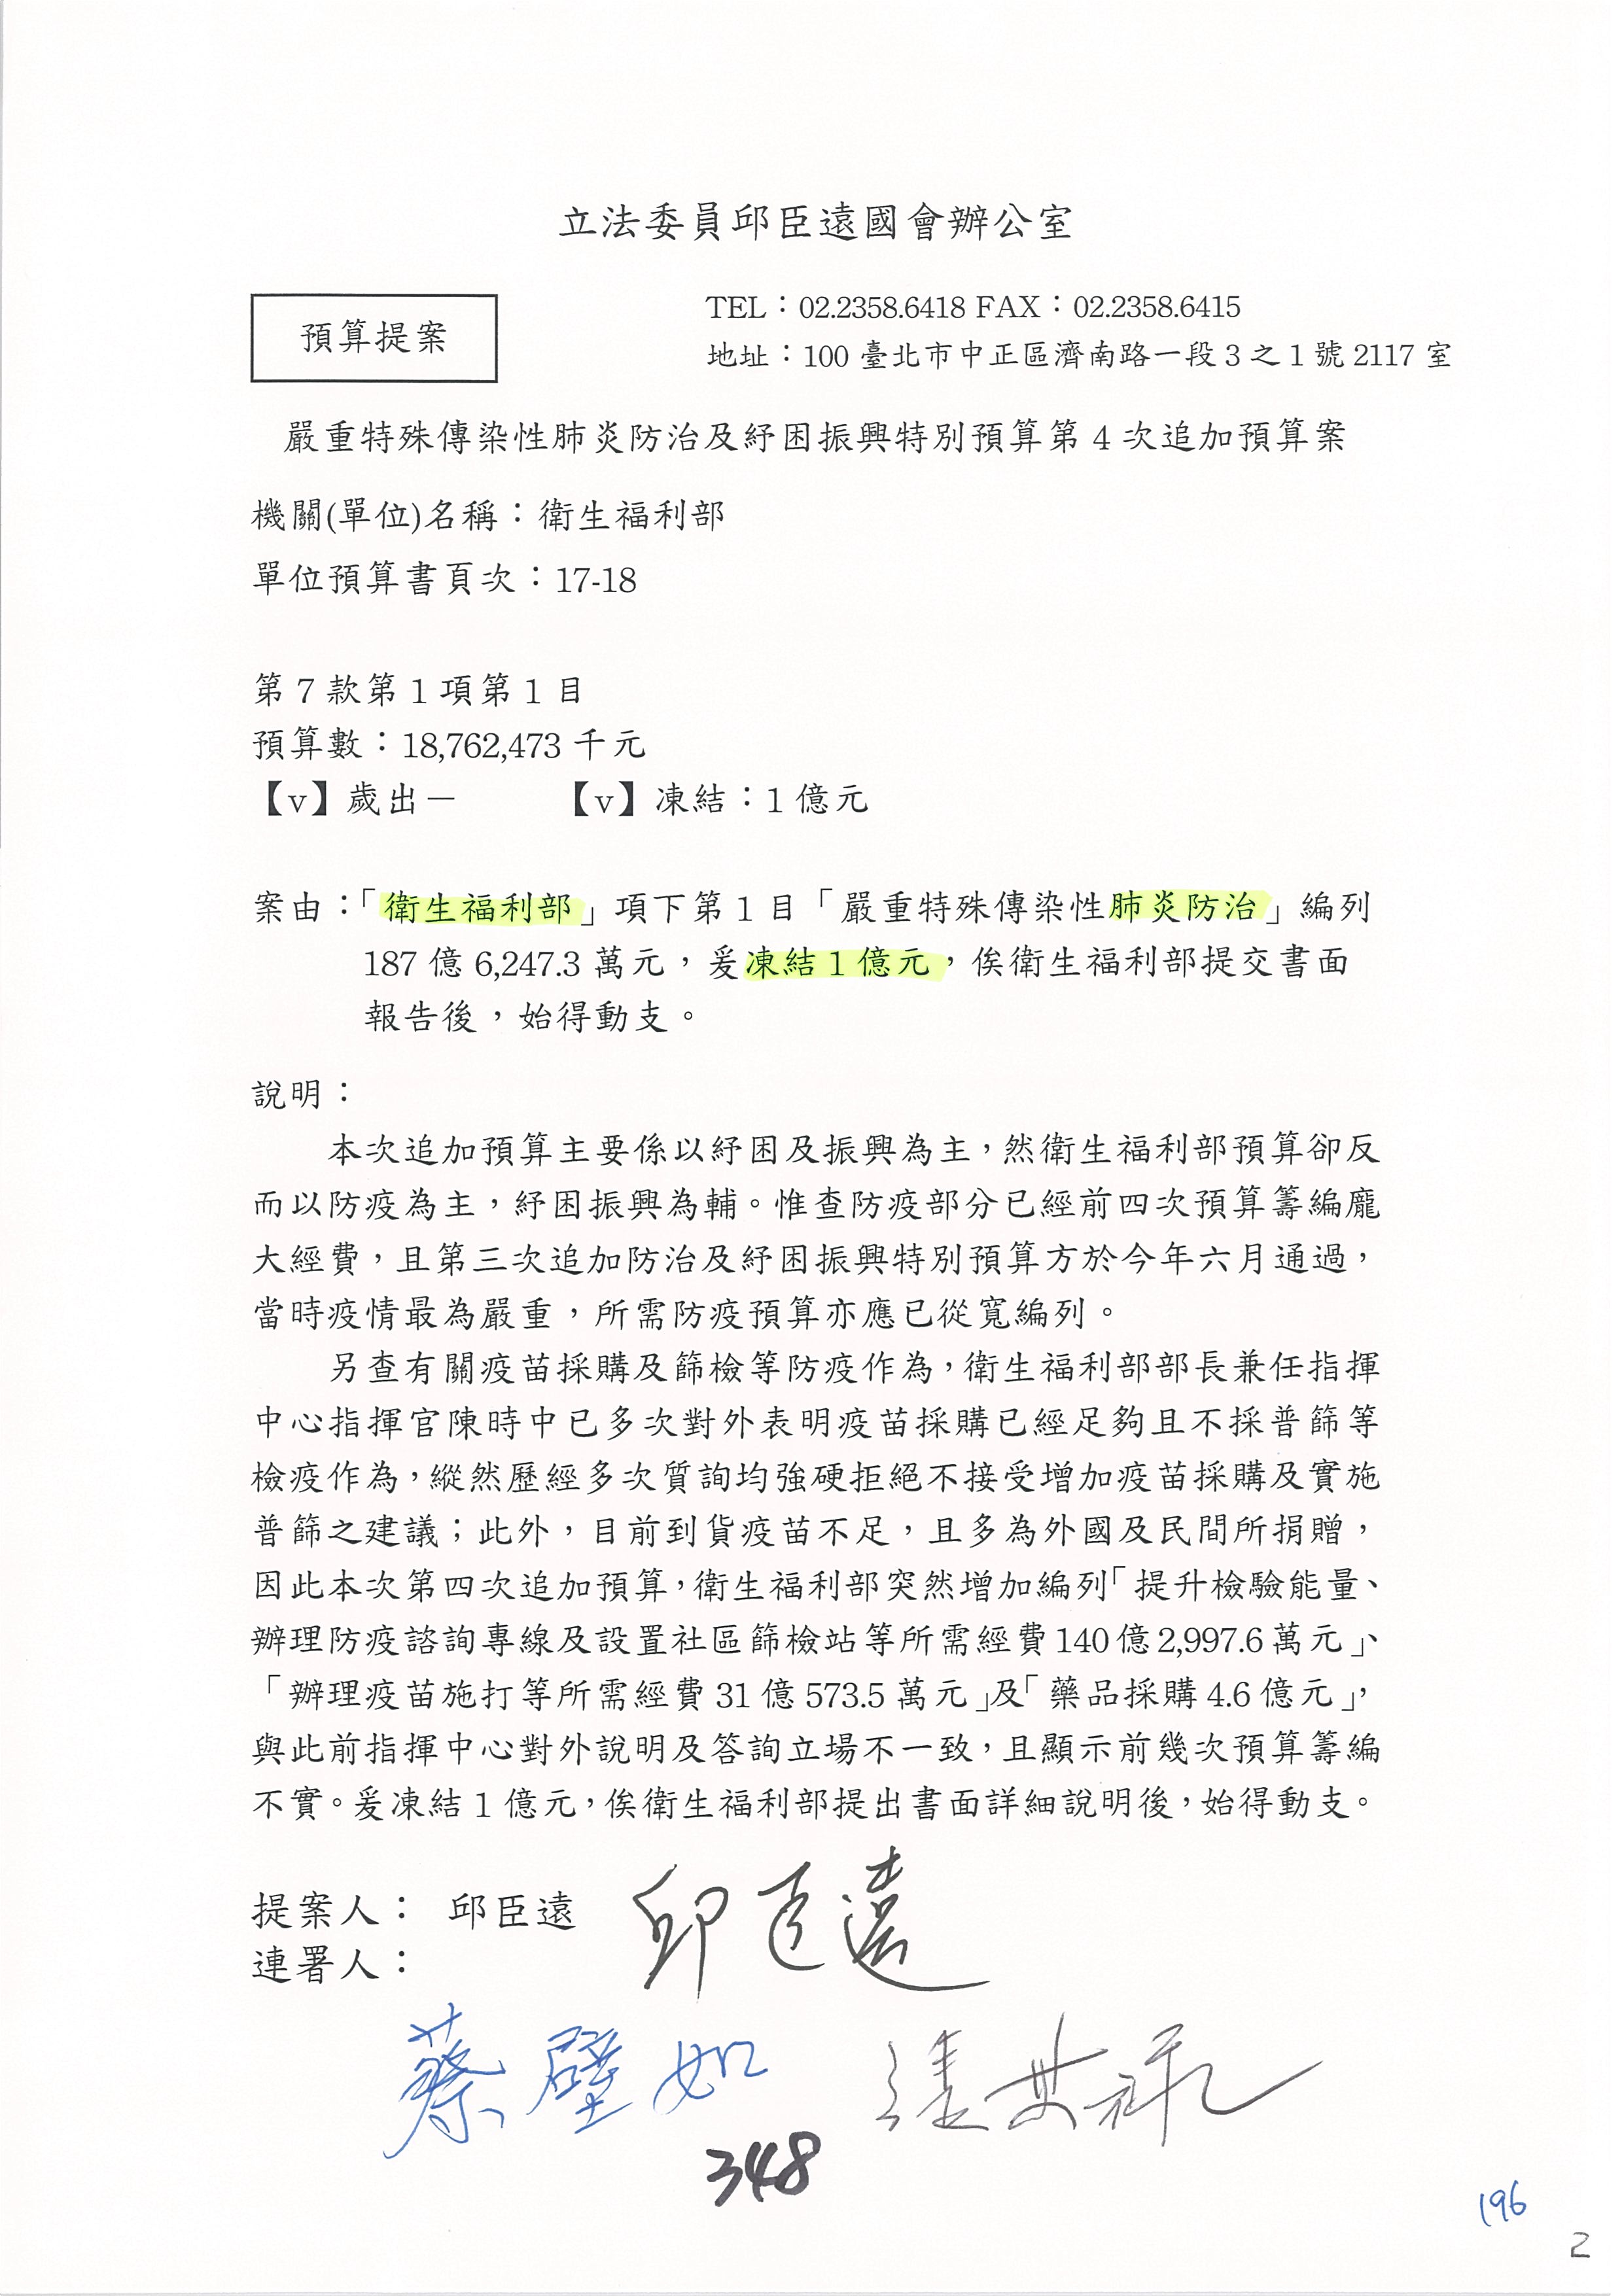 立法委員邱臣遠國會辦公室
預算提案
TEL：02.2358.6418 FAX：02.2358.6415
地址：100 臺北市中正區濟南路一段 3 之 1 號 2117 室
嚴重特殊傳染性肺炎防治及紓困振興特別預算第 4 次追加預算案
機關(單位)名稱：衛生福利部
單位預算書頁次：17-18
第 7 款第 1 項第 1 目
預算數：18,762,473 千元
【v】歲出－　　【v】凍結：1 億元
案由：「衛生福利部」項下第 1 目「嚴重特殊傳染性肺炎防治」編列
187 億 6,247.3 萬元，爰凍結 1 億元，俟衛生福利部提交書面
報告後，始得動支。
說明：
本次追加預算主要係以紓困及振興為主，然衛生福利部預算卻反
而以防疫為主，紓困振興為輔。惟查防疫部分已經前四次預算籌編龐
大經費，且第三次追加防治及紓困振興特別預算方於今年六月通過，
當時疫情最為嚴重，所需防疫預算亦應已從寬編列。
另查有關疫苗採購及篩檢等防疫作為，衛生福利部部長兼任指揮
中心指揮官陳時中已多次對外表明疫苗採購已經足夠且不採普篩等
檢疫作為，縱然歷經多次質詢均強硬拒絕不接受增加疫苗採購及實施
普篩之建議；此外，目前到貨疫苗不足，且多為外國及民間所捐贈，
因此本次第四次追加預算，衛生福利部突然增加編列「提升檢驗能量、
辦理防疫諮詢專線及設置社區篩檢站等所需經費 140 億 2,997.6 萬元」、
「辦理疫苗施打等所需經費 31 億 573.5 萬元」及「藥品採購 4.6 億元」，
與此前指揮中心對外說明及答詢立場不一致，且顯示前幾次預算籌編
不實。爰凍結 1 億元，俟衛生福利部提出書面詳細說明後，始得動支。
提案人：　邱臣遠　邱臣遠
連署人：
蔡壁如
348
196
2